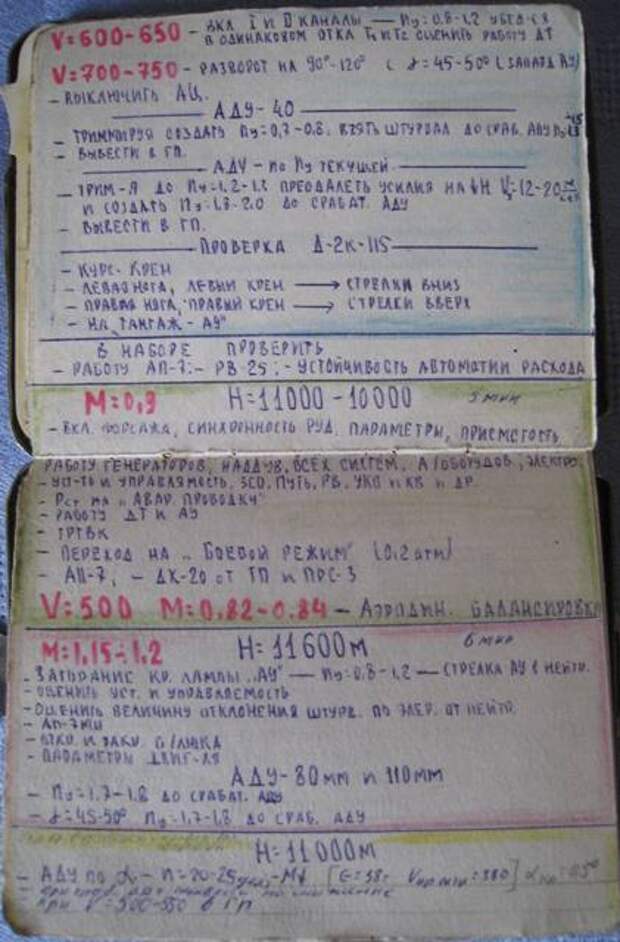 V=600-650 - ВКЛ I И II КАНАЛЫ — Пу=0.8-1.2 УБЕД-СЯ
В ОДИНАКОВОМ ОТКЛ Т₁ И Т₂ ОЦЕНИТЬ РАБОТУ ДТ
V=700-750 - РАЗВОРОТ НА 90°-120° С γ=45-50° (ЗАПАД АУ)
- ВЫКЛЮЧИТЬ АЦ.
АДУ-40
- ТРИММИРУЯ СОЗДАТЬ Пу=0,7-0.8. ВЗЯТЬ ШТУРВАЛ ДО СРАБ. АДУ
- ВЫВЕСТИ В ГП.
АДУ - ПО Пу ТЕКУЩЕЙ.
- ТРИМ-Я ДО Пу=1,2-1.3 ПРЕОДАЛЕТЬ УСИЛИЯ НА
И СОЗДАТЬ Пу=1.8-2.0 ДО СРАБАТ. АДУ
- ВЫВЕСТИ В ГП.
ПРОВЕРКА Д-2К-115
- КУРС-КРЕН
- ЛЕВАЯ НОГА, ЛЕВЫЙ КРЕН → СТРЕЛКИ ВНИЗ
- ПРАВАЯ НОГА, ПРАВЫЙ КРЕН → СТРЕЛКИ ВВЕРХ
- НА ТАНГАЖ - АУ"
В НАБОРЕ ПРОВЕРИТЬ
- РАБОТУ АП-7; - РВ-25; - УСТОЙЧИВОСТЬ АВТОМАТИИ РАСХОДА
М=0,9 Н=11000-10000 5 мин
- ВКЛ. ФОРСАЖА, СИНХРОННОСТЬ РУД. ПАРАМЕТРЫ, ПРИЕМСТОСТЬ
РАБОТУ ГЕНЕРАТОРОВ, НАДДУВ, ВСЕХ СИСТЕМ, А/ОБОРУДОВ, ЭЛЕКТРО
- УСТ-ТЬ И УПРАВЛЯМОСТЬ, ЗСО, ПУТЬ, РВ, УКВ И КВ И ДР.
- Рст НА „АВАР. ПРОВОДКУ"
- РАБОТУ ДТ И АУ
- ТРТВК
- ПЕРЕХОД НА „БОЕВОЙ РЕЖИМ" (0,2 атм)
- АП-7, - ДК-20 ОТ ГП И ПРС-3
V=500 М=0.82-0.84 - АЭРОДИН. БАЛАНСИРОВКА
М=1,15-1.2 Н=11600м 6 мин
- ЗАГОРАНИЕ КР. ЛАМПЫ „АУ" — Пу=0.8-1.2 — СТРЕЛКА АУ В НЕЙТР.
- ОЦЕНИТЬ УСТ. И УПРАВЛЯЕМОСТЬ
- ОЦЕНИТЬ ВЕЛИЧИНУ ОТКЛОНЕНИЯ ШТУРВ. ПО ЭЛЕР. ОТ НЕЙТР.
- АП-7МЦ
- ОТКР. И ЗАКР. Б/ЛЮКА
- ПАРАМЕТРЫ ДВИГ-ЛЯ
АДУ-80мм и 110мм
- Пу=1.7-1.8 ДО СРАБАТ. АДУ
- γ=45-50° Пу=1.7-1.8 ДО СРАБ. АДУ
Н=11000м
- АДУ ПО
ПРИ V=500-550 В ГП